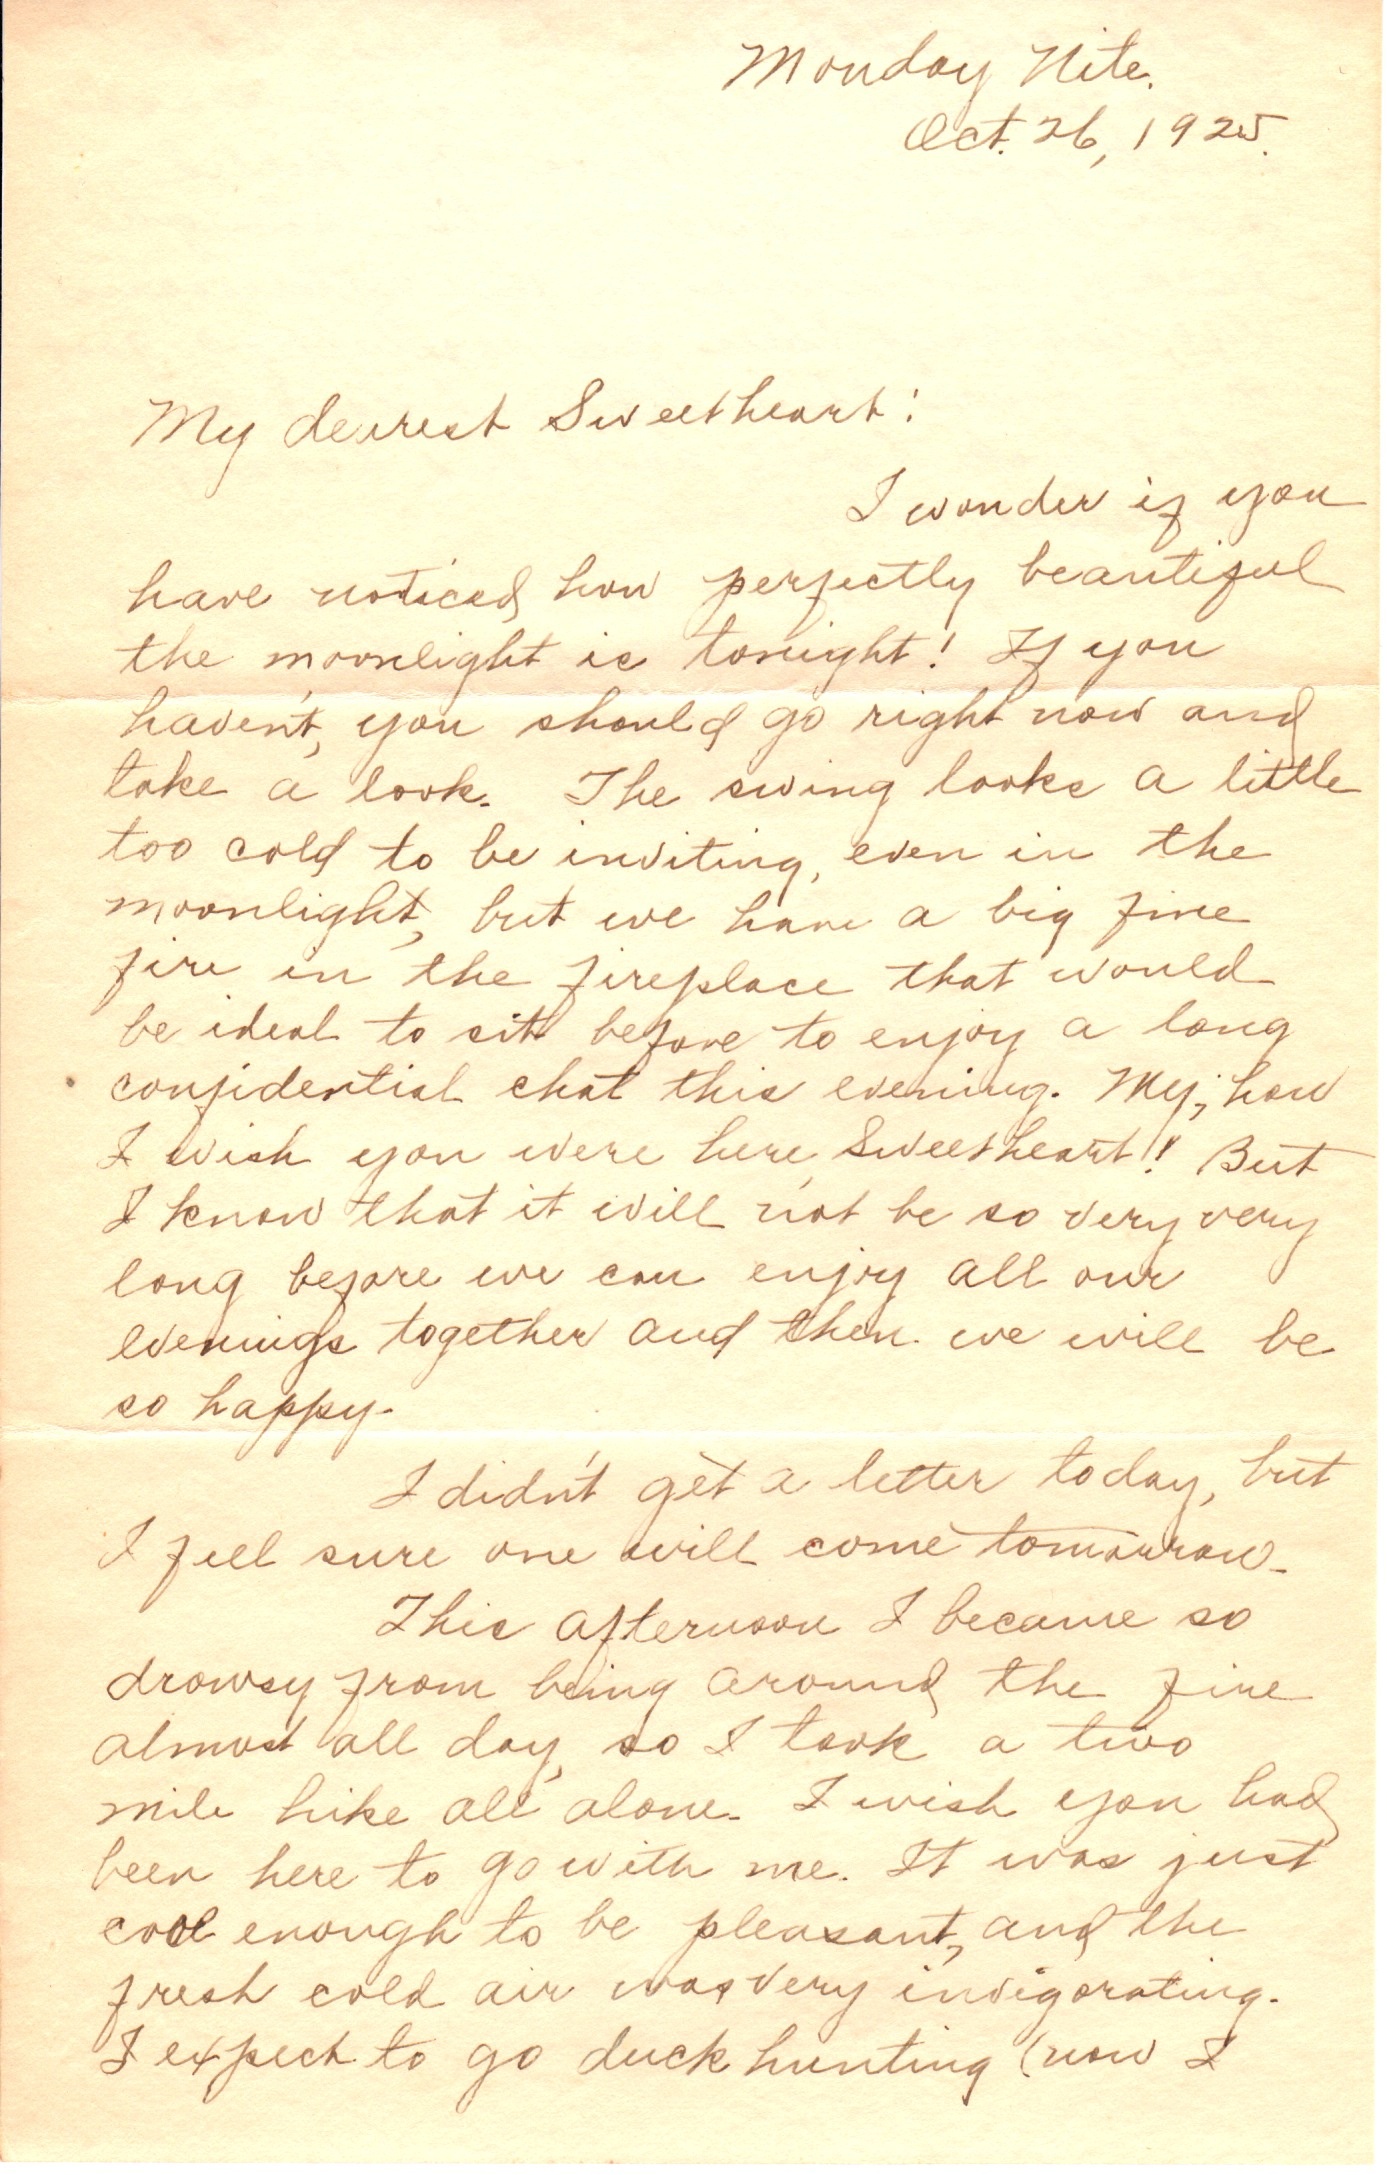 Monday Nite.
Oct. 26, 1925.
My dearest Sweetheart:
I wonder if you
have noticed how perfectly beautiful
the moonlight is tonight! If you
haven't, you should go right now and
take a look. The swing looks a little
too cold to be inviting, even in the
moonlight, but we have a big fine
fire in the fireplace that would
be ideal to sit before to enjoy a long
confidential chat this evening. My, how
I wish you were here Sweetheart! But
I know that it will not be so very very
long before we can enjoy all our
evenings together and then we will be
so happy.
I didn't get a letter today, but
I feel sure one will come tomorrow.
This afternoon I became so
drowsy from being around the fire
almost all day, so I took a two
mile hike all alone. I wish you had
been here to go with me. It was just
cool enough to be pleasant, and the
fresh cold air was very invigorating.
I expect to go duck hunting (now I